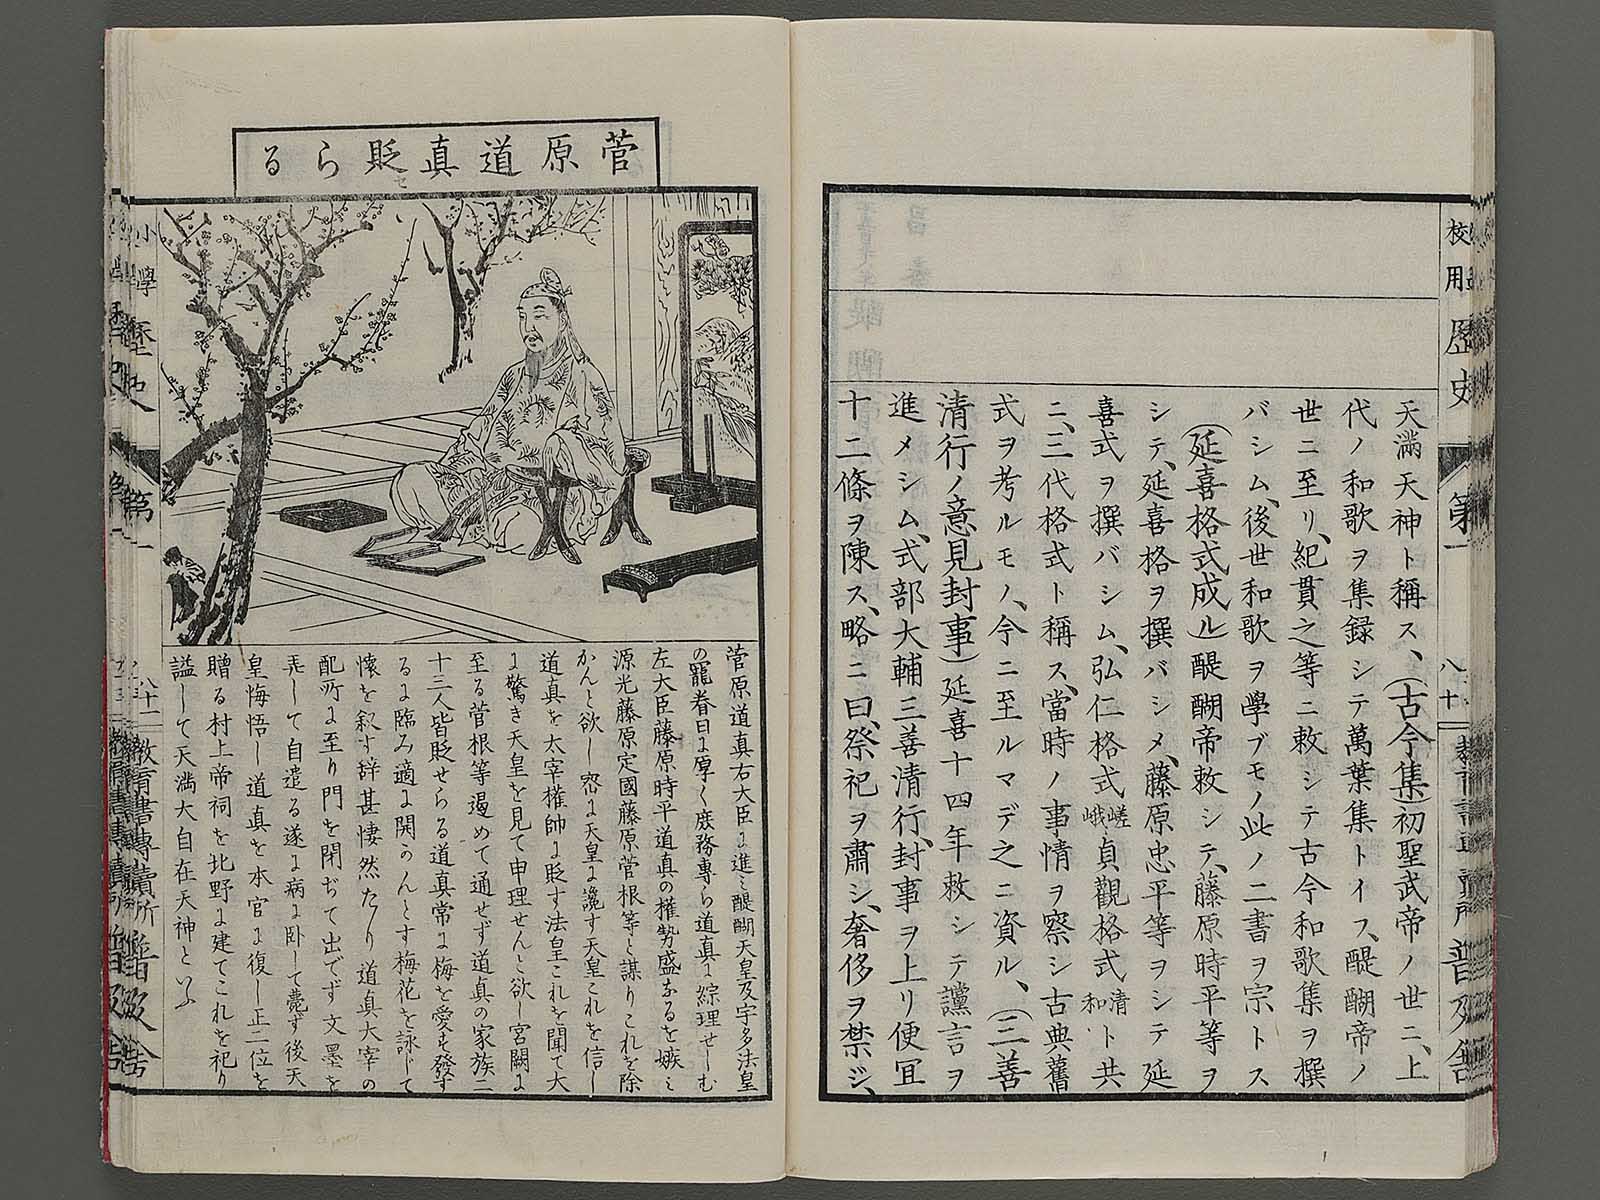 校用歴史
第一
八十
普及舎
天滿天神ト稱ス、(古今集)初聖武帝ノ世ニ、上
代ノ和歌ヲ集録シテ萬葉集トイフ、醍醐帝ノ
世ニ至リ、紀貫之等ニ敕シテ古今和歌集ヲ撰
バシム、後世和歌ヲ學ブモノ此ノ二書ヲ宗トス
(延喜格式成ル)醍醐帝敕シテ、藤原時平等ヲ
シテ、延喜格ヲ撰バシメ、藤原忠平等ヲシテ延
喜式ヲ撰バシム、弘仁格式嵯峨、貞觀格式清和ト共
ニ、三代格式ト稱ス、當時ノ事情ヲ察シ古典舊
式ヲ考ルモノ、今ニ至ルマデ之ニ資ル、(三善
清行ノ意見封事)延喜十四年敕シテ讜言ヲ
進メシム、式部大輔三善清行、封事ヲ上リ便宜
十二條ヲ陳ス、略ニ曰、祭祀ヲ肅シ、奢侈ヲ禁ジ、
菅原道真貶セらる
菅原道真右大臣に進ミ醍醐天皇及宇多法皇
の寵眷日に厚く庶務專ら道真に綜理せしむ
左大臣藤原時平道真の權勢盛なるを嫉ミ
源光藤原定國藤原菅根等と謀りこれを除
かんと欲し密に天皇に讒す天皇これを信し
道真を太宰權帥に貶す法皇これを聞て大
に驚き天皇を見て申理せんと欲し宮闕に
至る菅根等遏めて通せず道真の家族二
十三人皆貶せらる道真常に梅を愛す發す
るに臨み適に開かんとす梅花を詠じて
懷を叙す辞甚悽然たり道真大宰の
配所に至り門を閉ぢて出でず文墨を
弄して自遣る遂に病に臥して薨ず後天
皇悔悟し道真を本官に復し正二位を
贈る村上帝祠を北野に建てこれを祀り
諡して天満大自在天神といふ
小學歴史
第一
八十一
教育書專賣所 普及舎